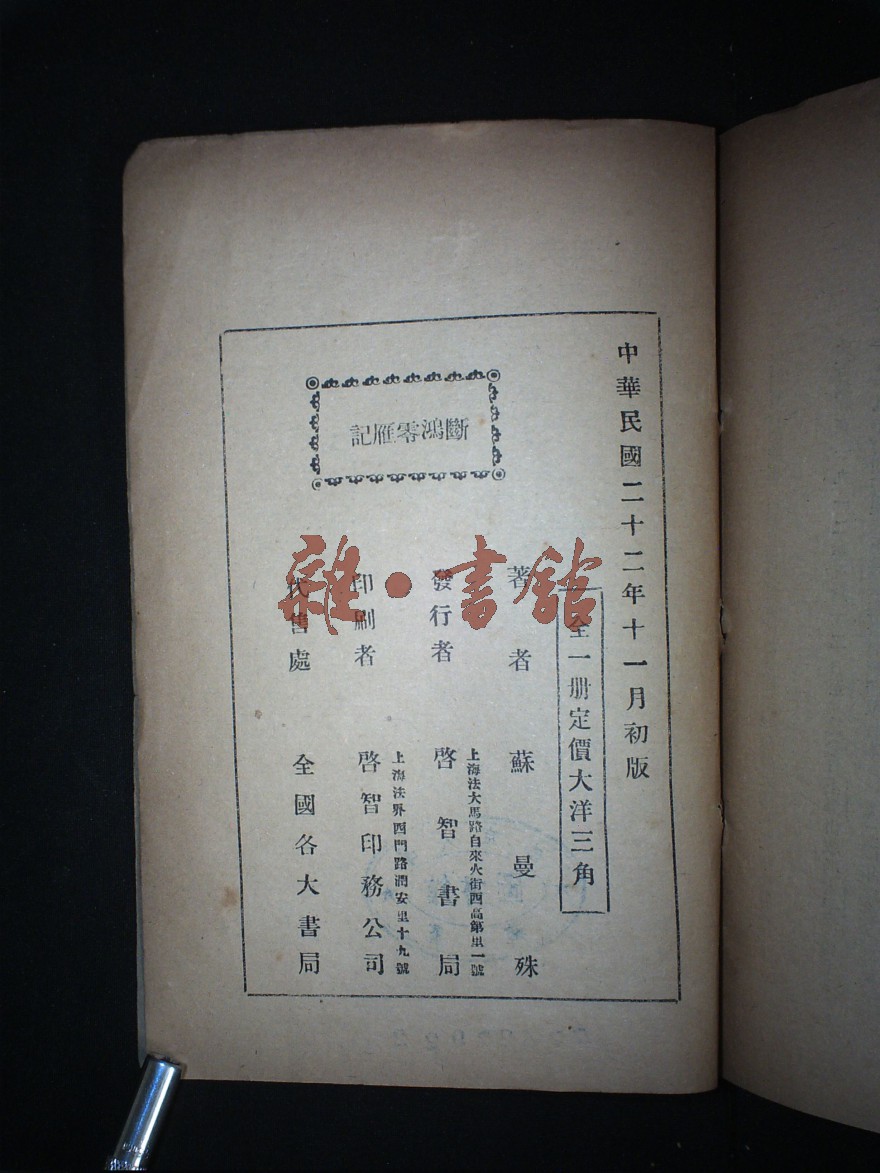 中華民國二十二年十一月初版
全一册定價大洋三角
斷鴻零雁記
著者 蘇曼殊
發行者 啓智書局
上海法大馬路自來火街西高第里一號
印刷者 啓智印務公司
上海法界西門路潤安里十九號
代售處 全國各大書局
雜·書館